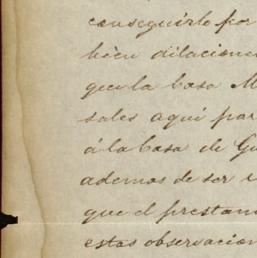 conseguirlo por
bien dilacione
que la Casa M
sales aquí par
á la Casa de Gu
ademas de ser
que el prestam
estas observacion